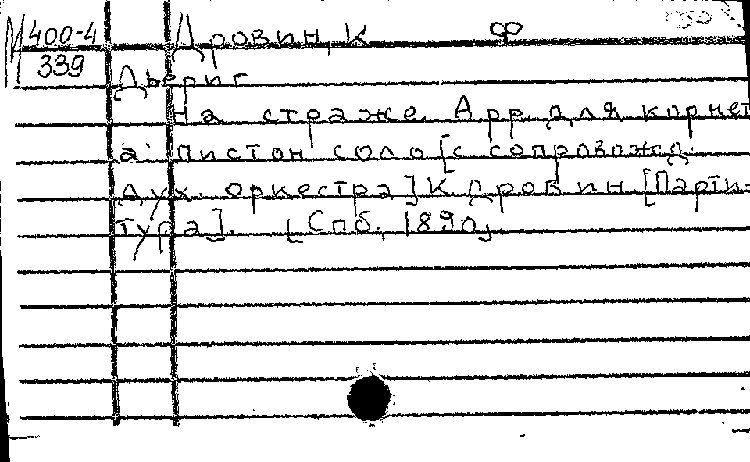 М 400-4 Дровин, К Ф
339
Дьериг
На страже. Арр. для корнет
а пистон соло [с сопровожд.
дух. оркестра] К. Дровин [Парти-
тура]. [Спб, 1890].